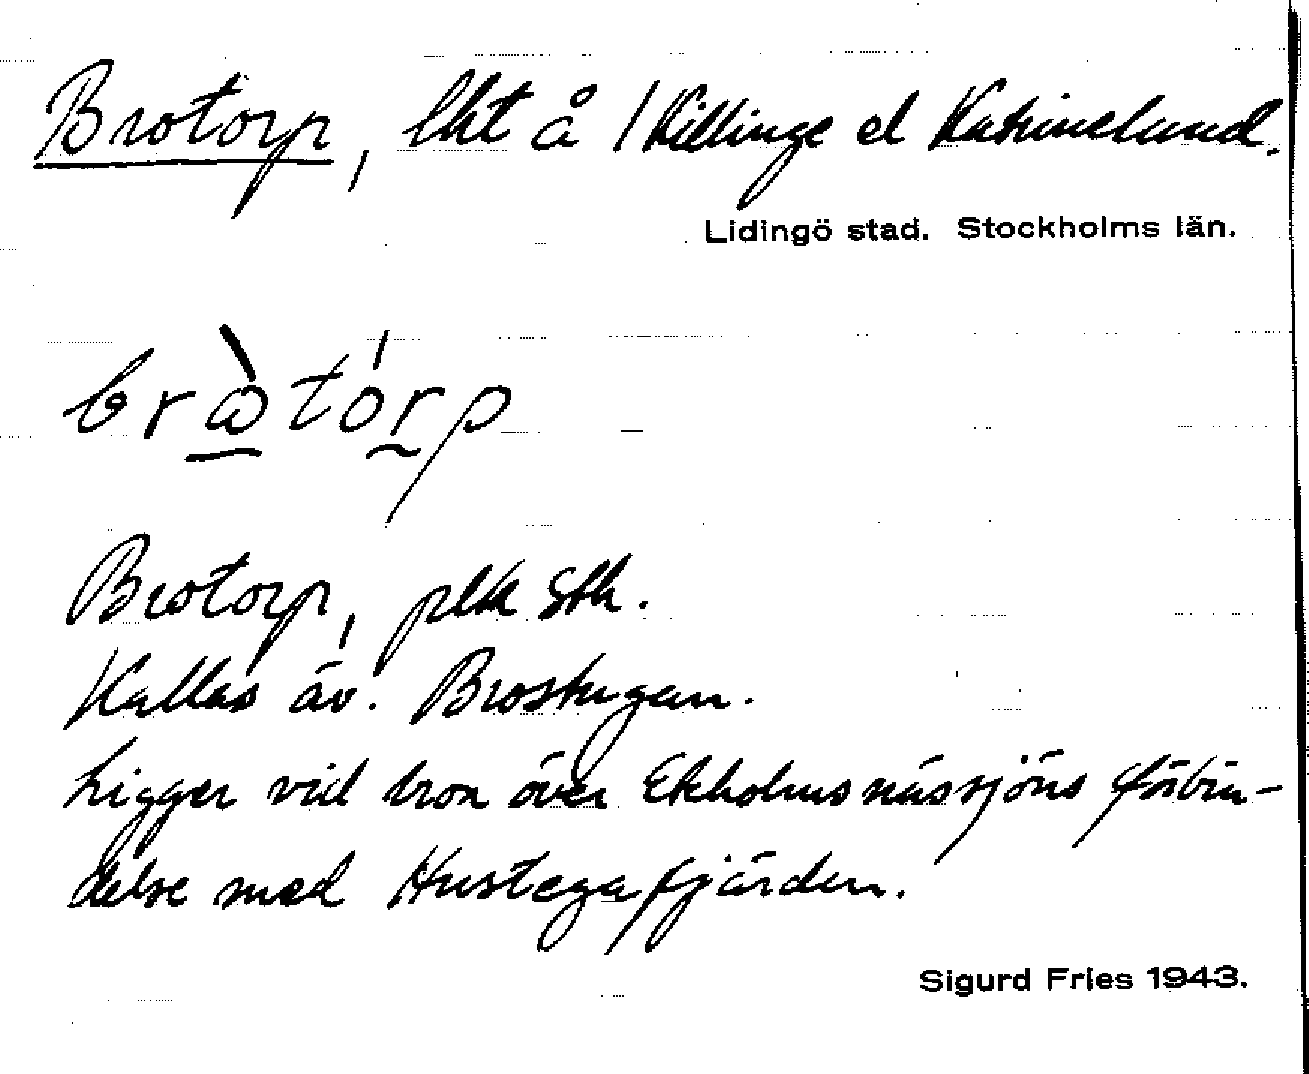 Brotorp, lht å 1 Killinge el Katrinelund.
Lidingö stad. Stockholms län.
bròtórp
Brotorp, plk Sth.
Kallas äv. Brostugan.
Ligger vid bron över Ekholmsnässjöns förbin-
delse med Hustegafjärden.
Sigurd Fries 1943.